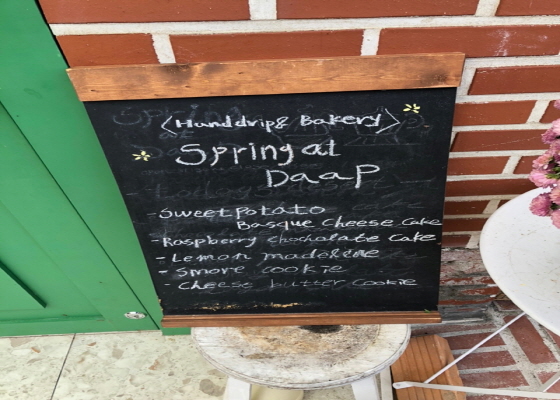 <Handdrip& Bakery>
Spring at
DaaP
-Sweet Potato
Basque Cheese Cake
-Raspberry chocholate Cake
-Lemon madelene
- Smore cookie
- Cheese butter cookie